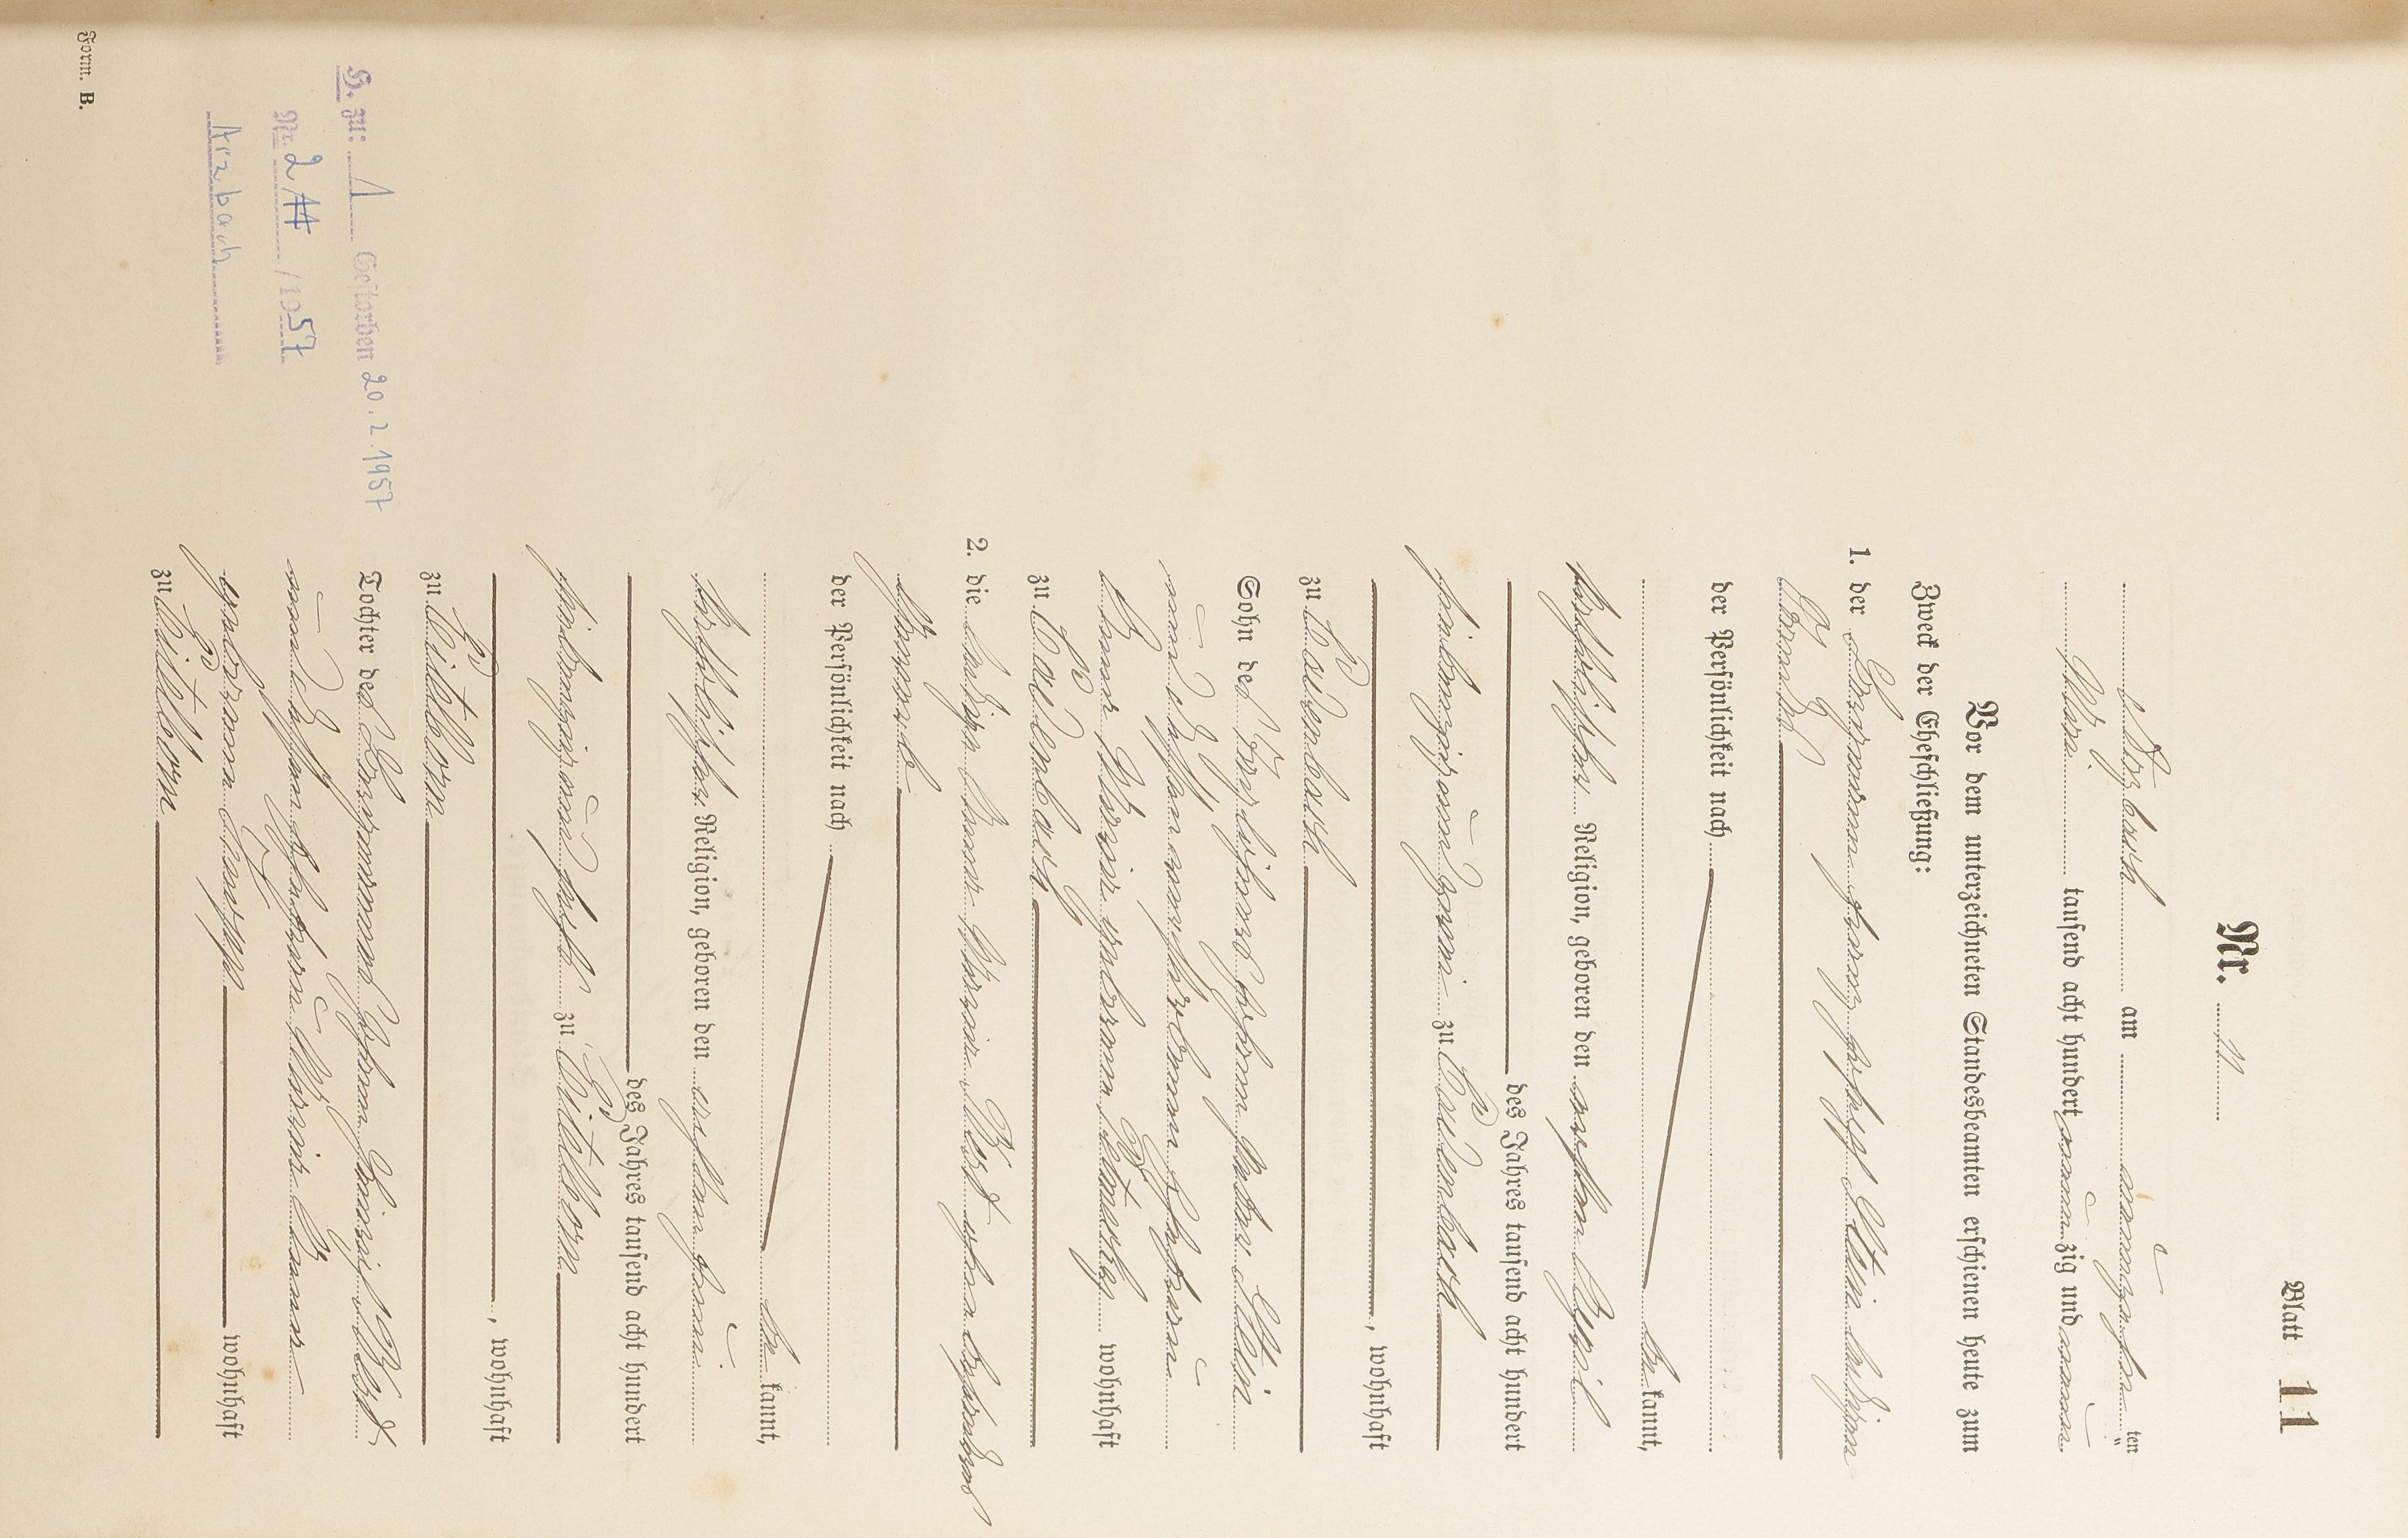 Blatt 11
Nr. 11
Arzbach am neunzehnten
Mai tausend acht hundert neunzig und neun
Vor dem unterzeichneten Standesbeamten erschienen heute zum
Zweck der Eheschließung:
1. der Bergmann Franz Josef Stein ledigen
Standes
der Persönlichkeit nach
be kannt,
katholischer Religion, geboren den ersten April
des Jahres tausend acht hundert
siebenzig und zu Cadenbach
, wohnhaft
zu Cadenbach
Sohn des Tagelöhners Johann Peter Stein
und dessen verstorbenen Ehefrau
Anna Maria geborene wohnhaft
zu Cadenbach
2. die ledige Anna Maria ohne besonderes
Gewerbe
der Persönlichkeit nach
be kannt,
katholischer Religion, geboren den ersten Juni
des Jahres tausend acht hundert
siebenzig und sechs zu Eitelborn
, wohnhaft
zu Eitelborn
Tochter des Bergmannes Johann Heinrich
und dessen Ehefrau Maria Anna
geborenen wohnhaft
zu Eitelborn
H. zu: 1 Gestorben 20.2.1957
Nr. 2 /1957
Arzbach
Form. B.